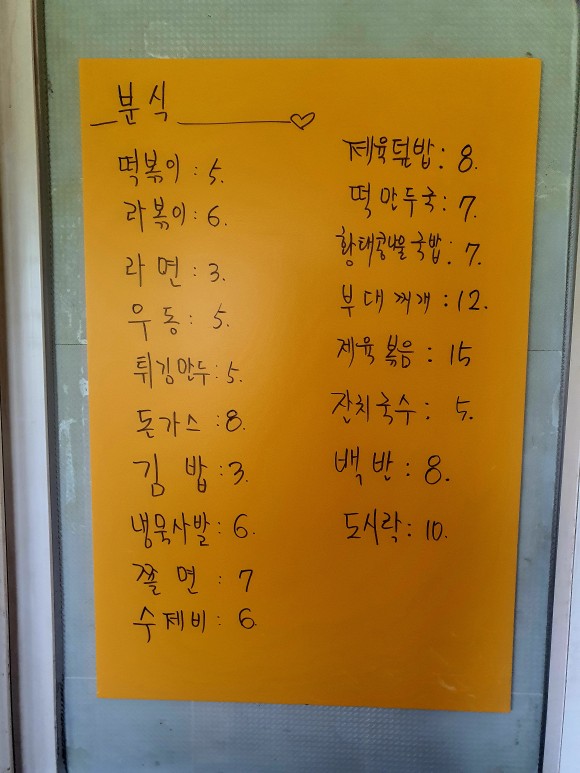 분식
떡볶이 : 5.
라볶이 : 6.
라면 : 3.
우동 : 5.
튀김만두 : 5.
돈가스 : 8.
김밥 : 3.
냉묵사발 : 6.
쫄면 : 7
수제비 : 6.
제육덮밥 : 8.
떡만두국 : 7.
황태콩나물국밥 : 7.
부대찌개 : 12.
제육볶음 : 15
잔치국수 : 5.
백반 : 8.
도시락 : 10.